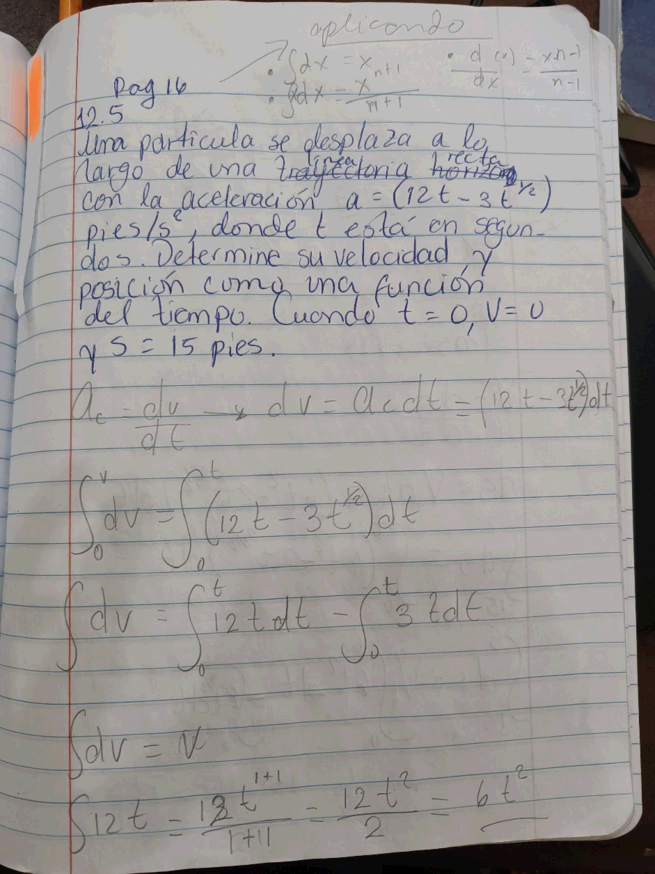 aplicando
• ∫dx = x
• d/dx (x) = xn-1/n-1
• ∫dx = x^n+1/n+1
Pag 16
12.5
Una partícula se desplaza a lo
largo de una linea recta
con la aceleración a = (12t - 3t^1/2)
pies/s², donde t está en segun-
dos. Determine su velocidad y
posición como una función
del tiempo. Cuando t = 0, V = 0
y S = 15 pies.
ac = dv/dt → dv = ac dt = (12t - 3t^1/2)dt
∫₀^v dv = ∫₀^t (12t - 3t^1/2)dt
∫dv = ∫₀^t 12t dt - ∫₀^t 3tdt
∫dv = V
∫12t = 12t^1+1/1+1 = 12t²/2 = 6t²